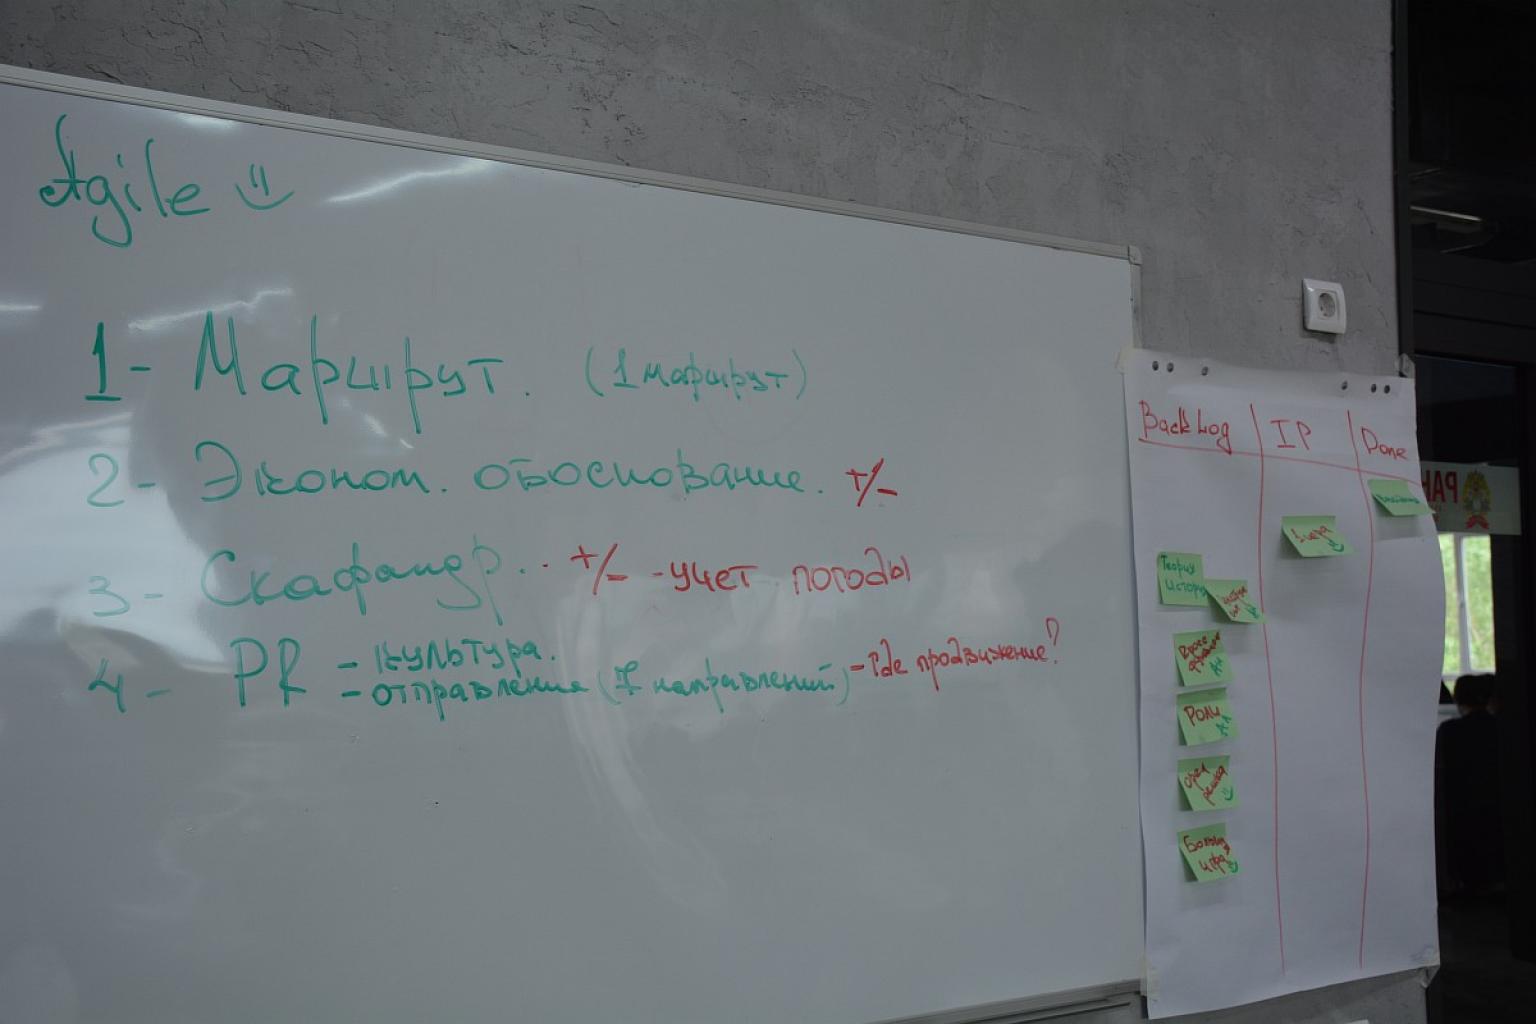 Agile
1 - Маршрут. (1 маршрут)
2 - Эконом. обоснование. +/-
3 - Скафандр.. +/- - учет погоды
4 - PR - культура.
- отправления (7 направлений) - Где продвижение?
BackLog IP Done
1 игра
Теория
история
Роли
Орел
решка
Большая
игра
РАН